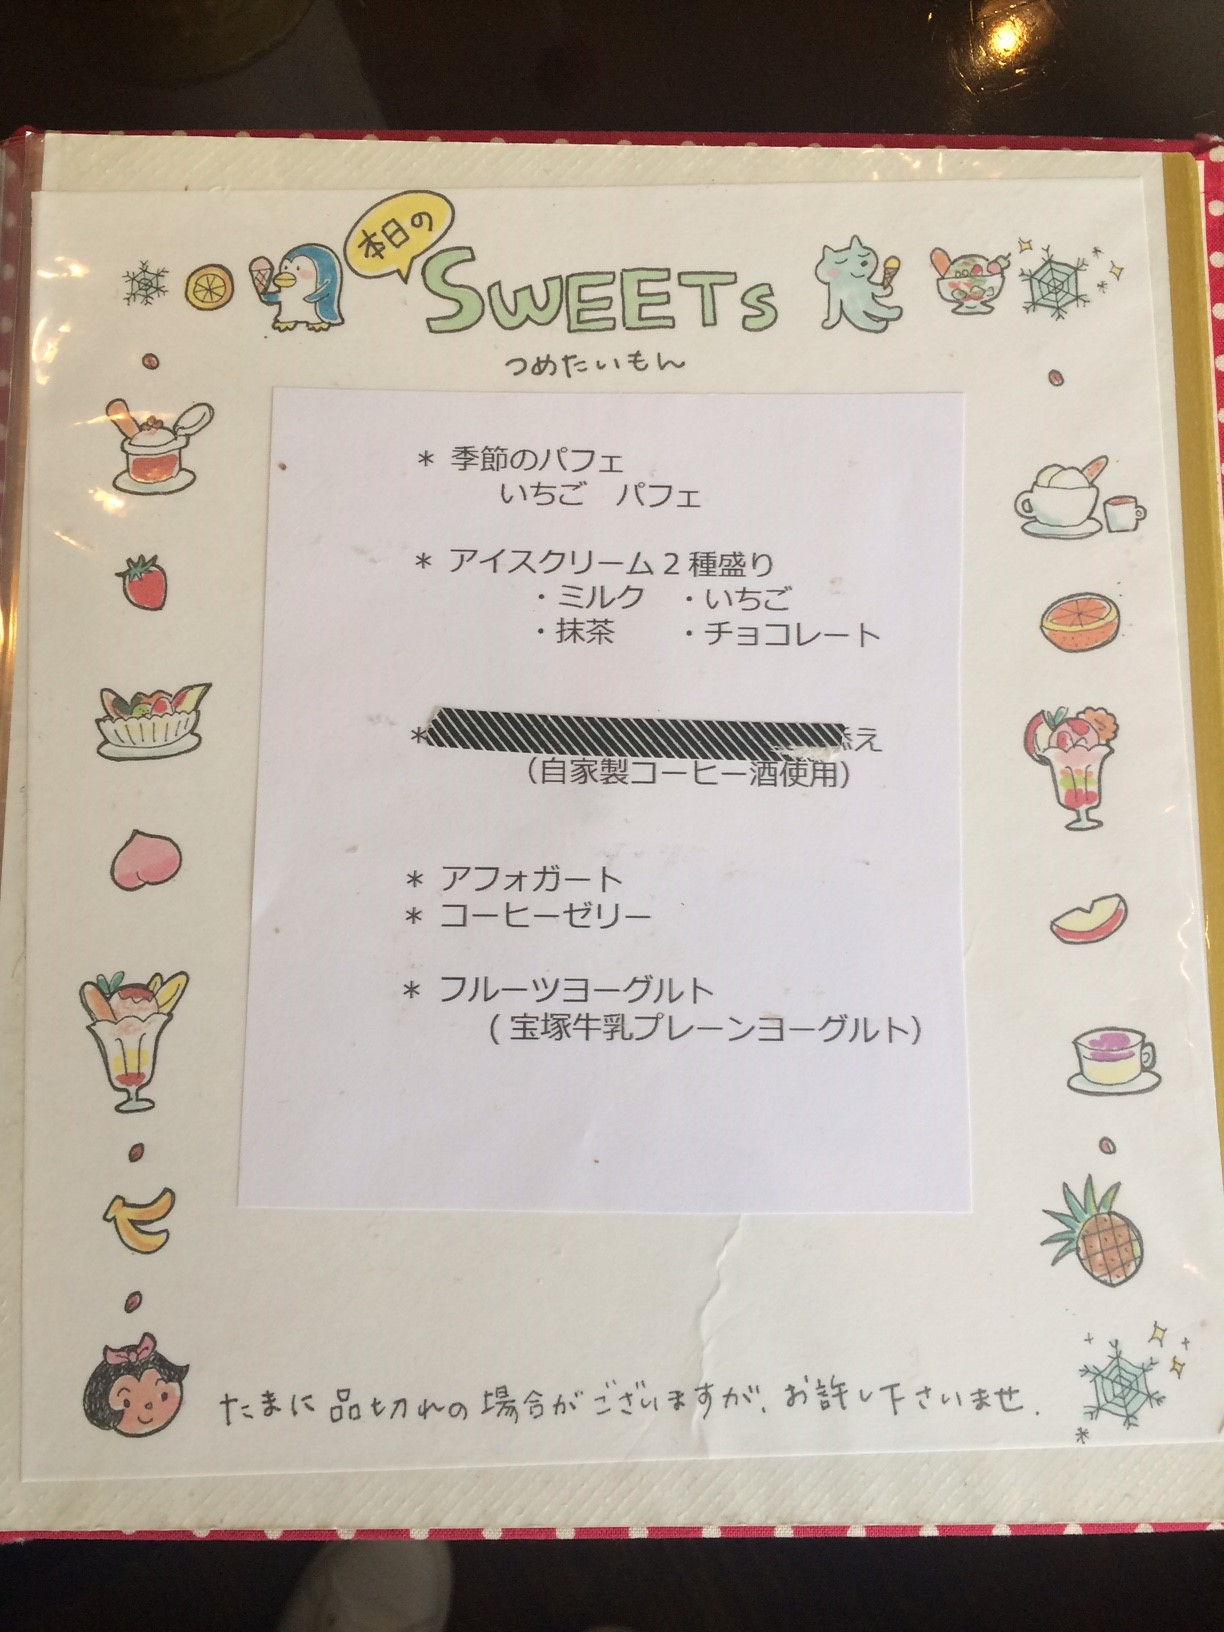 本日の
SWEETS
つめたいもん
* 季節のパフェ
いちご パフェ
* アイスクリーム2種盛り
・ミルク ・いちご
・抹茶 ・チョコレート
* 添え
(自家製コーヒー酒使用)
* アフォガート
* コーヒーゼリー
* フルーツヨーグルト
(宝塚牛乳プレーンヨーグルト)
たまに品切れの場合がございますが、お許し下さいませ.